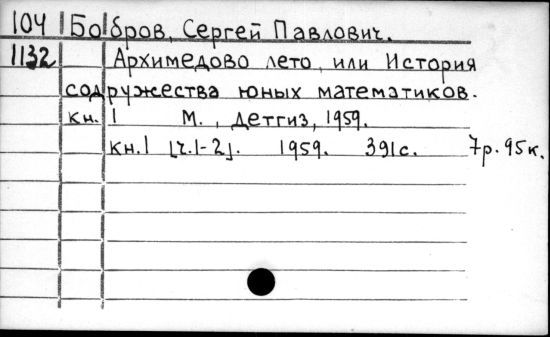 104 Бобров, Сергей Павлович.
1132 Архимедово лето, или История
содружества юных математиков.
кн. 1 М., Детгиз, 1959.
кн. 1 [ч. 1-2]. 1959. 391 с. 7р. 95к.